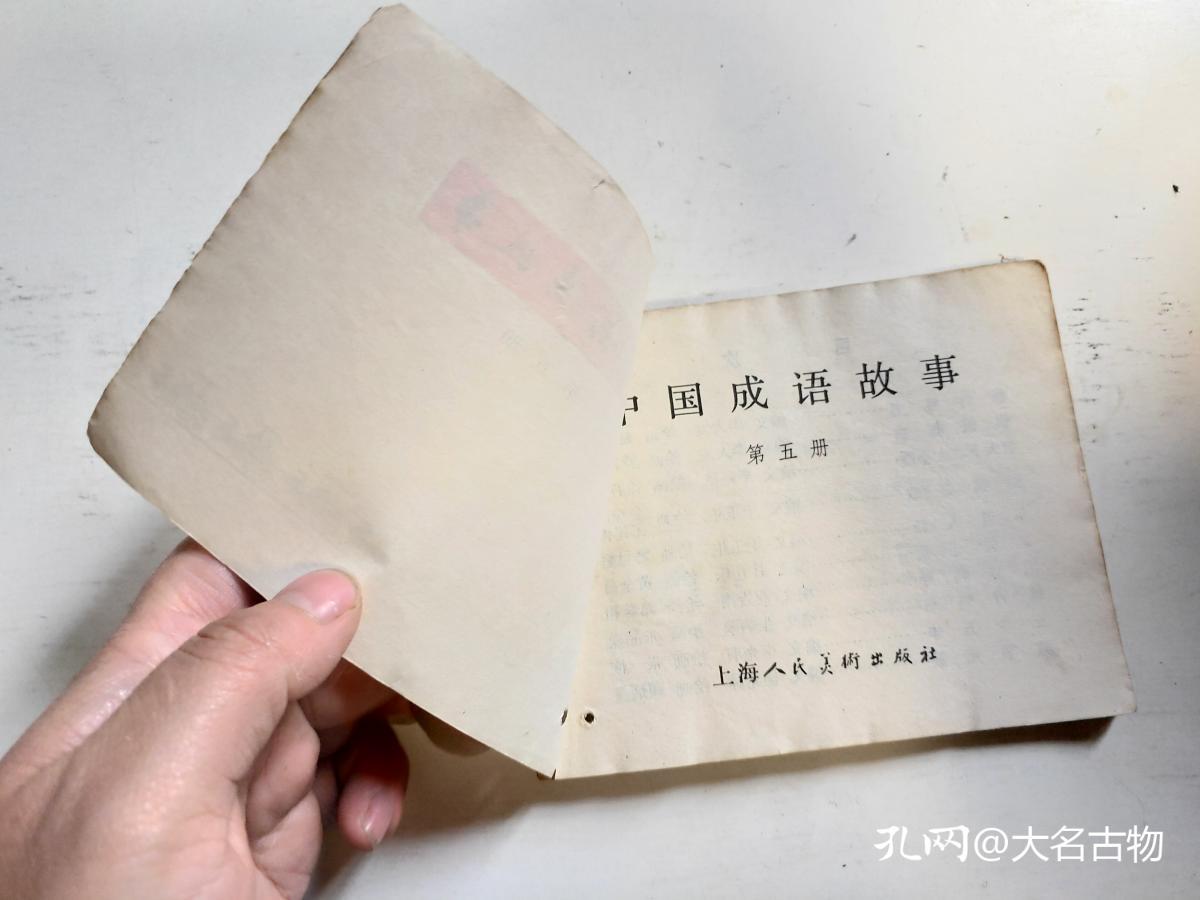 中国成语故事
第五册
上海人民美術出版社
孔网@大名古物